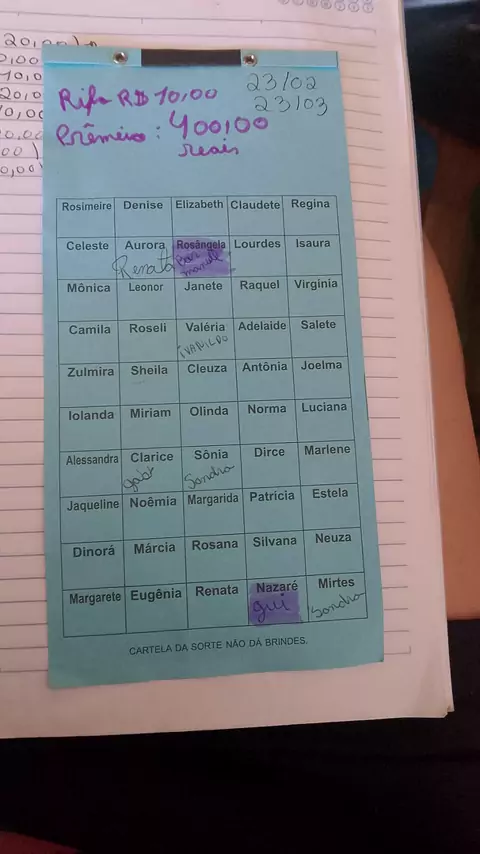 20,00
0,00
10,0
20,0
10,00
20,00
00
0,00
Rifa R$ 10,00
23/02
23/03
Prêmeio : 400,00
reais
Rosimeire Denise Elizabeth Claudete Regina
Celeste Aurora Rosângela Lourdes Isaura
Renata
Mônica Leonor Janete Raquel Virgínia
Camila Roseli Valéria Adelaide Salete
IVANILDO
Zulmira Sheila Cleuza Antônia Joelma
Iolanda Miriam Olinda Norma Luciana
Alessandra Clarice Sônia Dirce Marlene
Sandra
Jaqueline Noêmia Margarida Patrícia Estela
Dinorá Márcia Rosana Silvana Neuza
Margarete Eugênia Renata Nazaré Mirtes
gui Sandra
CARTELA DA SORTE NÃO DÁ BRINDES.